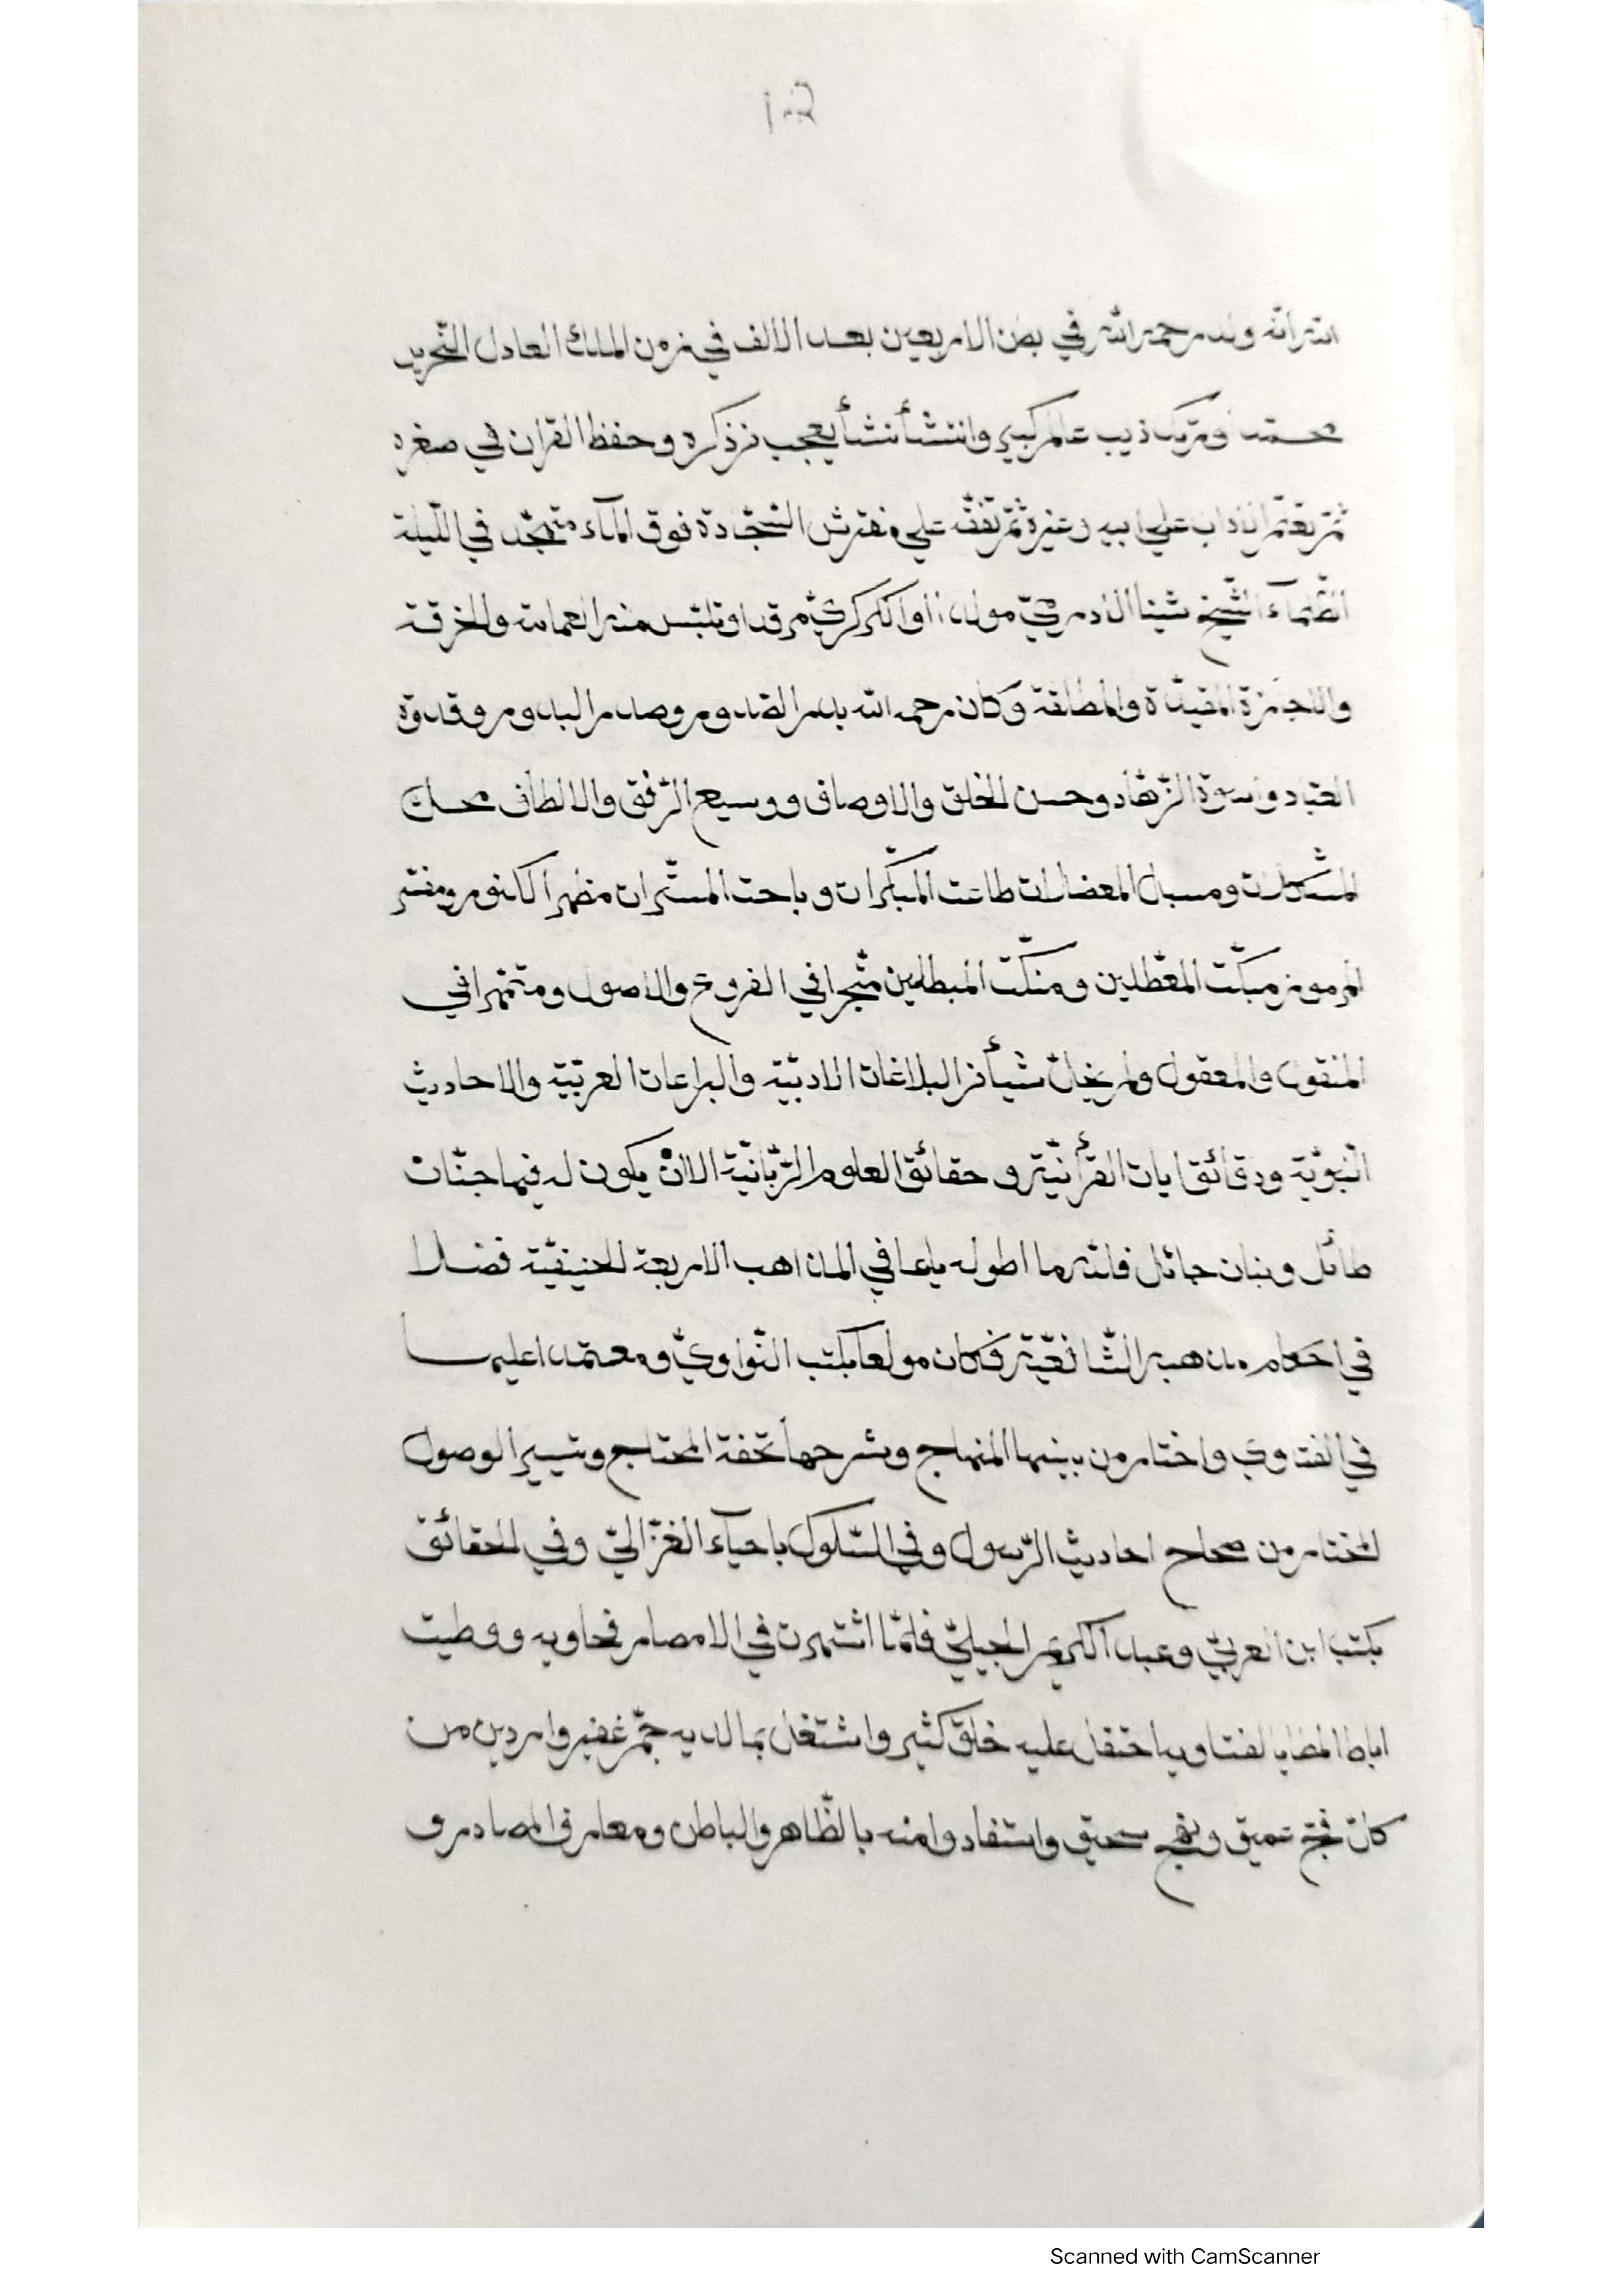 ولد رحمه الله في بضن الاربعين بعد الالف في زمن الملك العادل النّحرير
محمّد عالمركير وانتشأ نشأ يعجب من ذكره وحفظ القران في صغره
ثمّ تعلّم الاداب علي ابيه وغيره ثمّ تفقّه علي مفترش السّجّادة فوق المآء متهجّد في اللّيلة
الظّلمآء الشّيخ وتلبّس منه العمامة والخرقة
والاجازة المقيّدة والمطلقة وكان رحمه الله بدر الصّدور وصدر البدور وقدوة
العبّاد واسوة الزّهّاد وحسن الخلق والاوصاف ووسيع الرّفق والالطاف محلّ
المشكلات ومسبل المعضلات وباحت المستّرات مظهر الكنوز ومفسّر
الرموز مبكّت المعطّلين ومنكّت المبطلين متبحّرا في الفروع والاصول ومتمهّرا في
المنقول والمعقول ولم يخلّ شيأ من البلاغات الادبيّة والبراعات العربيّة والاحاديث
النّبويّة ودقائق ايات القرأنيّة وحقائق العلوم الرّبّانيّة الا ان يكون له فيها جنّات
طائل وبنان جائل فللّه ما اطوله باعا في المذاهب الاربعة الحنيفيّة فضلا
في احكام مذهبه الشّافعيّة فكان مولعا بكتب النّواويّ ومعتمدا عليها
في الفتاوي واختار من بينها المنهاج وشرحها تحفة المحتاج وتيسير الوصول
المختار من صحاح احاديث الرّسول وفي السّلوك باحيآء الغزّاليّ وفي الحقائق
بكتب ابن العربيّ وعبد الكريم الجيليّ فلمّا اشتهرت في الامصار فحاويه ووطيت
اباط المطايا لفتاويه احتفل عليه خلق كثير واشتغل بما لديه جمّ غفير واردين من
كلّ فجّ عميق ونهج سحيق واستفادوا منه بالظّاهر والباطن ومعارف المصادر و